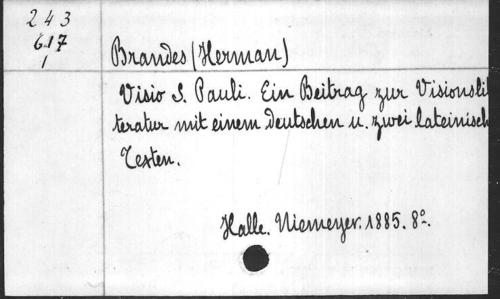 243
617
1
Brandes (Herman)
Visio S. Pauli. Ein Beitrag zur Visionsli
teratur mit einem deutschen u. zwei lateinisch
Texten.
Halle. Niemeyer. 1885. 8°.